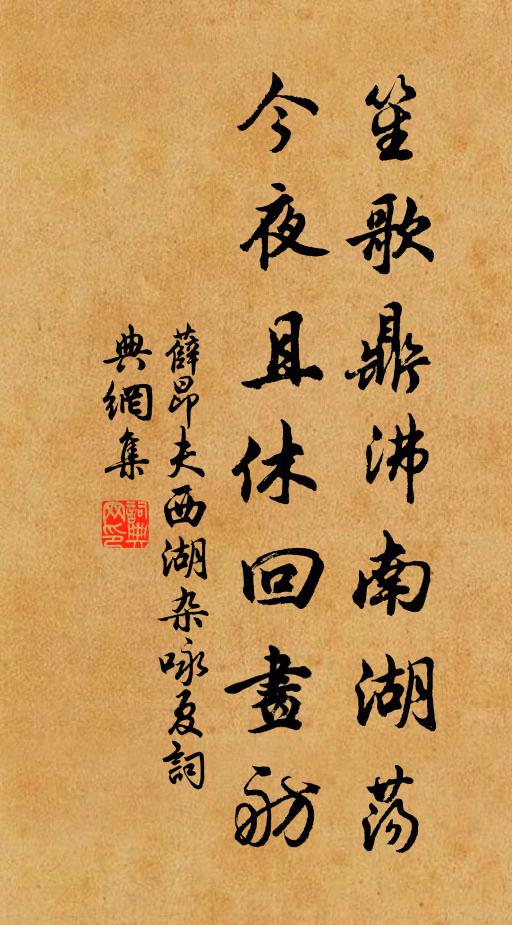 笙歌鼎沸南湖蕩
今夜且休回畫舫
薛昂夫西湖杂咏夏詞
典網集
詞典网印